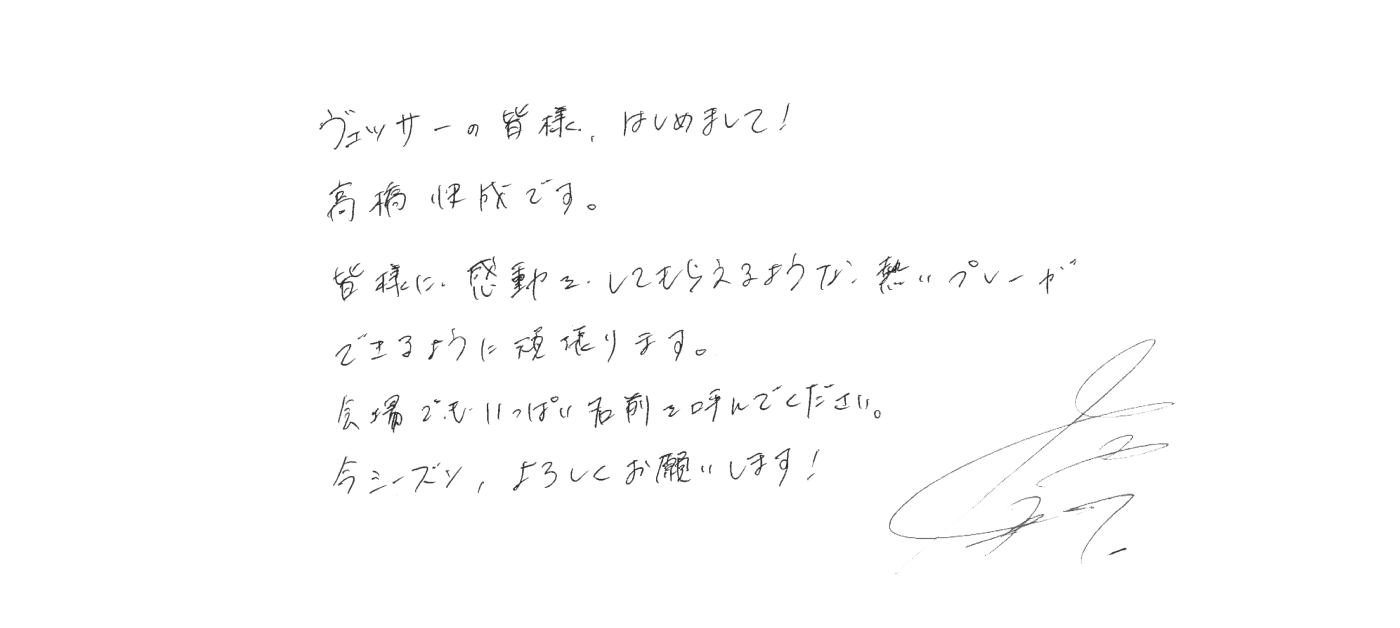 ヴェッサーの皆様、はじめまして!
高橋快成です。
皆様に感動をしてもらえるような熱いプレーが
できるように頑張ります。
会場でもいっぱい名前を呼んでください。
今シーズン、よろしくお願いします!